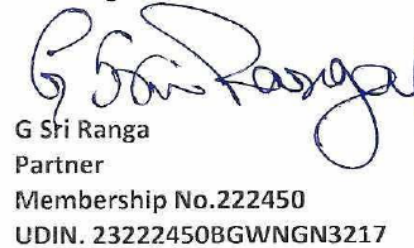 G Sri Ranga
G Sri Ranga
Partner
Membership No.222450
UDIN. 23222450BGWNGN3217